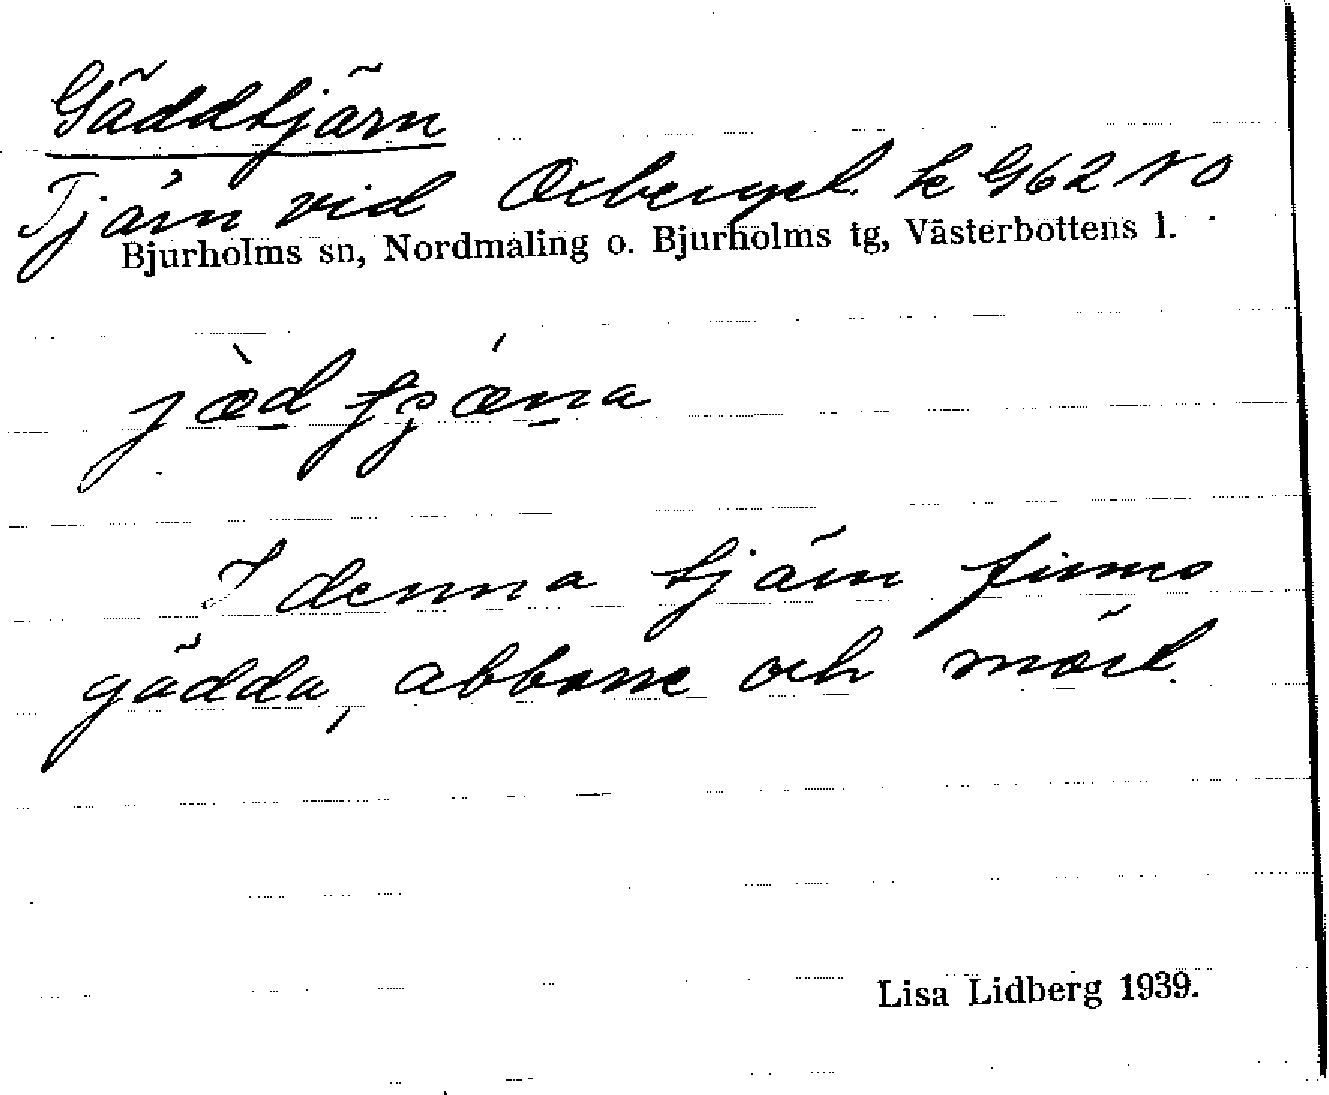 Gäddtjärn
Tjärn vid Oxberget k G62 NO
Bjurholms sn, Nordmaling o. Bjurholms tg, Västerbottens l.
jæ̀d
I denna tjärn finns
gädda, abborre och mört.
Lisa Lidberg 1939.